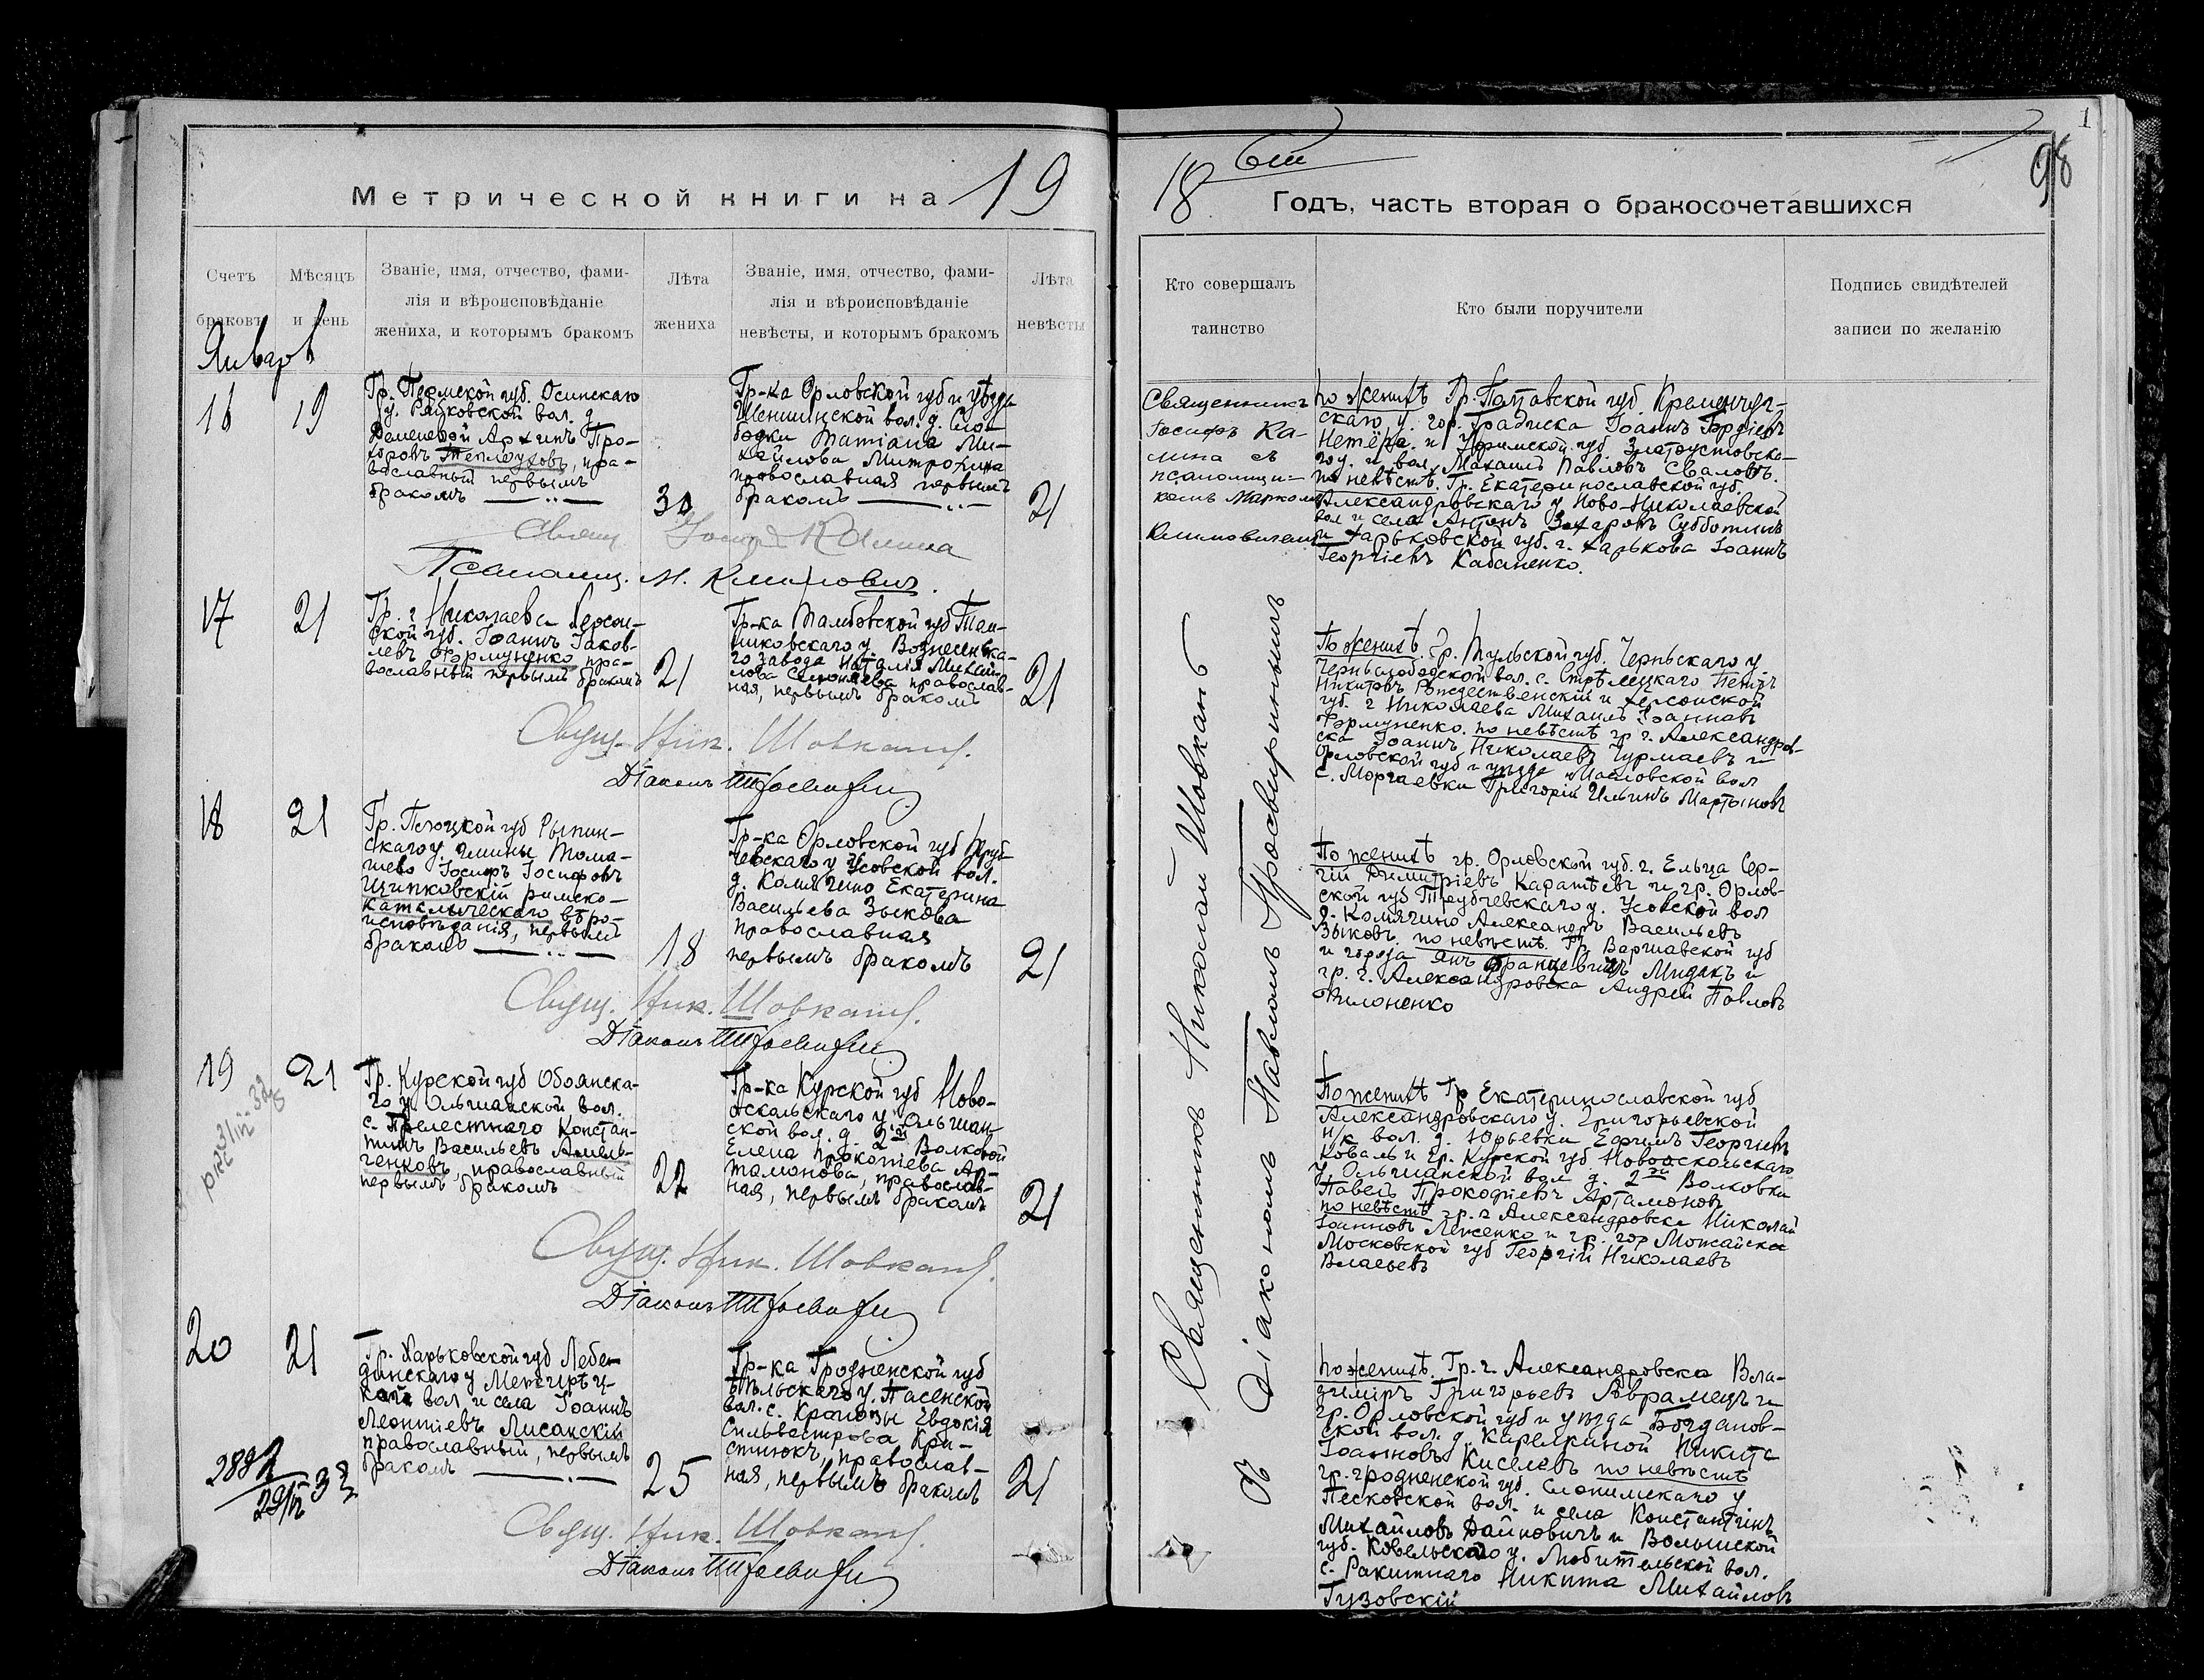 1
98
Метрической книги на 19
18 Годъ, часть вторая о бракосочетавшихся
Счетъ браковъ
Мѣсяцъ и день
Званіе, имя, отчество, фами-
лія и вѣроисповѣданіе
жениха, и которымъ бракомъ
Лѣта
жениха
Званіе, имя, отчество, фами-
лія и вѣроисповѣданіе
невѣсты, и которымъ бракомъ
Лѣта
невѣсты
Кто совершалъ
таинство
Кто были поручители
Подпись свидѣтелей
записи по желанію
Январь
16
19
Гр. Пермской губ. Осинскаго
у. Рябковской вол. д.
Деменевой Архипъ Про-
хоровъ Теплоуховъ, пра-
вославный первымъ
бракомъ
30
Гр-ка Орловской губ и уѣзда
Шеншинской вол. д. Сло-
бодки Татіана Ми-
хайлова Митрохина
православная первымъ
бракомъ
21
Священникъ
Іосифъ Ка-
лина съ
псаломщи-
комъ Маркомъ
Климовичемъ
По женихѣ Гр. Полтавской губ. Кременчуг-
скаго у. гор. Градиска Іоаннъ Гордіевъ
Нетёра и Уфимской губ. Златоустовска-
го у. и вол. Михаилъ Павловъ Сваловъ.
по невѣстѣ. Гр. Екатеринославской губ.
Александровскаго у. Ново-Николаевской
вол и села Антонъ Захаровъ Субботинъ
и Харьковской губ. г. Харькова Іоаннъ
Георгіевъ Кабаненко.
Свящ. Іосифъ Калина
Псаломщ. М. Климовичъ.
17
21
Гр. г Николаева Херсон-
ской губ. Іоаннъ Іаков-
левъ Формуненко пра-
вославный первымъ бракомъ
21
Гр-ка Тамбовской губ Тем-
никовскаго у. Вознесенска-
го завода Наталія Михай-
лова православ-
ная, первымъ бракомъ
21
По женихѣ. Гр. Тульской губ. Черньскаго у.
Чернослободской вол. с. Стрѣлецкаго Петръ
Никитовъ Рождественскій и Херсонской
губ. г Николаева Михаилъ Іоанновъ
Формуненко. по невѣстѣ гр г. Александров-
ска Іоаннъ Николаевъ Чурмаевъ и
Орловской губ и уѣзда Масловской вол
с. Моргаевки Григорій Ильинъ Мартыновъ
Свящ. Ник. Шовкапъ.
Діаконъ П. Просвирн
18
21
Гр. Плоцкой губ Рыпин-
скаго у. гмины Тома-
шево Іосифъ Іосифовъ
Щипковскій римско-
католическаго вѣро-
исповѣданія, первымъ
бракомъ
18
Гр-ка Орловской губ Труб-
чевскаго у Усовской вол.
д. Комягино Екатерина
Васильева Зыкова
православная
первымъ бракомъ
21
По женихѣ гр. Орловской губ. г. Ельца Сер-
гій Димитріевъ Каратѣевъ и гр. Орлов-
ской губ Трубчевскаго у. Усовской вол
д. Комягино Александръ Васильевъ
Зыковъ. по невѣстѣ. Гр. Варшавской губ
и города Янъ Францевичъ Мидакъ и
гр. г. Александровска Андрей Павловъ
Филоненко
Свящ. Ник. Шовкапъ.
Діаконъ П. Просвирн
19
21
Гр. Курской губ Обоянска-
го у. Ольшанской вол.
с. Прелестнаго Констан-
тинъ Васильевъ Амель-
ченковъ, православный
первымъ бракомъ
22
Гр-ка Курской губ Ново-
оскольскаго у. Ольшан-
ской вол. д. 2й Волковой
Елена Прокопіева Ар-
тамонова, православ-
ная, первымъ бракомъ
21
По женихѣ Гр Екатеринославской губ
Александровскаго у. Григорьевской
н/к вол. д. Юрьевки Ефимъ Георгіевъ
Коваль и гр. Курской губ. Новооскольскаго
у. Ольшанской вол д. 2ой Волковки
Павелъ Прокофіевъ Артамоновъ
по невѣстѣ гр. г Александровска Николай
Іоанновъ Леженко и гр. гор Можайска
Московской губ Георгій Николаевъ
Власьевъ
Свящ. Ник. Шовкапъ.
Діаконъ П. Просвирн
20
21
Гр. Харьковской губ Лебе-
динскаго у Межирѣц-
кой вол. и села Іоаннъ
Леонтіевъ Лисанскій
православный, первымъ
бракомъ
25
Гр-ка Гродненской губ
Бѣльскаго у. Пасенской
вол. с. Евдокія
Сильвестрова Кри-
стюкъ, православ-
ная, первымъ бракомъ
21
По женихѣ. Гр. г. Александровска Вла-
диміръ Григорьевъ Аврамецъ и
гр. Орловской губ и уѣзда Богданов-
ской вол. д. Карелкиной Никита
Іоанновъ Киселевъ по невѣстѣ
гр. гродненской губ. Слонимскаго у
Песковской вол. и села Константинъ
Михайловъ Дайновичъ и Волынской
губ. Ковельскаго у. Любитовской вол.
с. Ракитнаго Никита Михайловъ
Гузовскій
Свящ. Ник. Шовкапъ.
Діаконъ П. Просвирн
Священникъ Николай Шовкапъ
съ Діакономъ Павломъ Просвирнинымъ